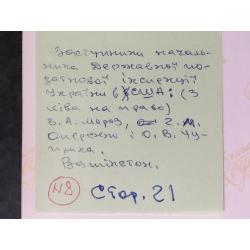 Заступники началь-
ника Державної по-
даткової інспекції
України в США: (з
ліва на право)
В. А. Мороз, Г. М.
Оперенко і О. В. Чу-
прина.
Вашінгтон.
№8 Стор. 21